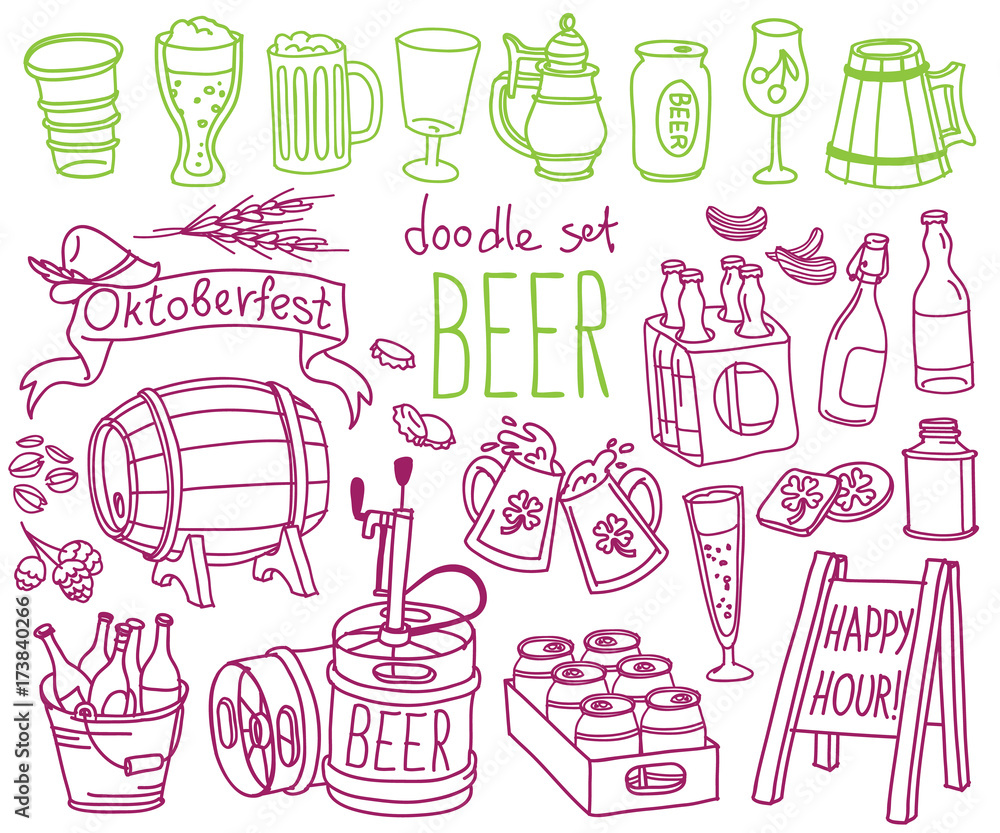 BEER
doodle set
BEER
Oktoberfest
HAPPY
HOUR!
BEER
Adobe Stock | #173840266